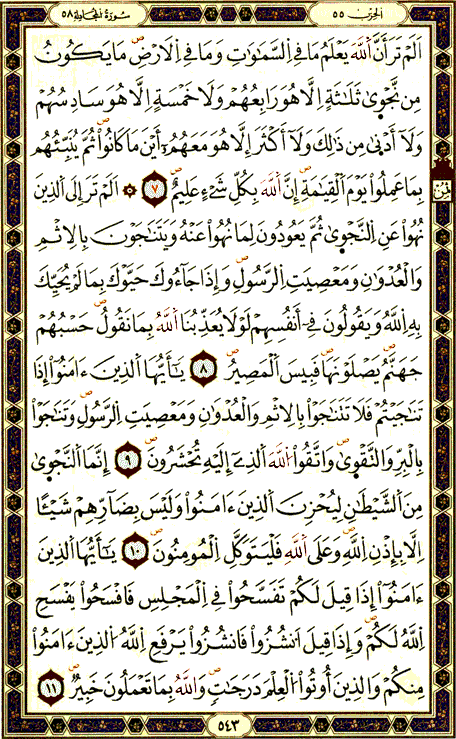 الحزب ٥٥
سورة المجادلة ٥٨
اَلَمْ تَرَ أَنَّ اَللَّهَ يَعْلَمُ مَا فِے اِلسَّمَٰوَٰتِ وَمَا فِے اِلَارْضِۖ مَا يَكُونُ
مِن نَّجْوَىٰ ثَلَٰثَةٍ اِلَّا هُوَ رَابِعُهُمْ وَلَا خَمْسَةٍ اِلَّا هُوَ سَادِسُهُمْ
وَلَآ أَدْنَىٰ مِن ذَٰلِكَ وَلَآ أَكْثَرَ إِلَّا هُوَ مَعَهُمُۥٓ أَيْنَ مَا كَانُواْۖ ثُمَّ يُنَبِّئُهُم
بِمَا عَمِلُواْ يَوْمَ اَلْقِيَٰمَةِۖ إِنَّ اَللَّهَ بِكُلِّ شَےْءٍ عَلِيمٌۖ ٧ ۞ اَلَمْ تَرَ إِلَى اَلذِينَ
نُهُواْ عَنِ اِلنَّجْوَىٰ ثُمَّ يَعُودُونَ لِمَا نُهُواْ عَنْهُ وَيَتَنَٰجَوْنَ بِالِاثْمِ
وَالْعُدْوَٰنِ وَمَعْصِيَتِ اِلرَّسُولِۖ وَإِذَا جَآءُوكَ حَيَّوْكَ بِمَا لَمْ يُحَيِّكَ
بِهِ اِللَّهُ وَيَقُولُونَ فِےٓ أَنفُسِهِمْ لَوْلَا يُعَذِّبُنَا اَللَّهُ بِمَا نَقُولُۖ حَسْبُهُمْ
جَهَنَّمُ يَصْلَوْنَهَاۖ فَبِيسَ اَلْمَصِيرُۖ ٨ يَٰٓأَيُّهَا اَلذِينَ ءَامَنُوٓاْ إِذَا
تَنَٰجَيْتُمْ فَلَا تَتَنَٰجَوْاْ بِالِاثْمِ وَالْعُدْوَٰنِ وَمَعْصِيَتِ اِلرَّسُولِۖ وَتَنَٰجَوْاْ
بِالْبِرِّ وَالتَّقْوَىٰۖ وَاتَّقُواْ اُللَّهَ اَلذِےٓ إِلَيْهِ تُحْشَرُونَۖ ٩ إِنَّمَا اَلنَّجْوَىٰ
مِنَ اَلشَّيْطَٰنِ لِيُحْزِنَ اَلذِينَ ءَامَنُواْ وَلَيْسَ بِضَآرِّهِمْ شَيْـًٔا
اِلَّا بِإِذْنِ اِللَّهِۖ وَعَلَى اَللَّهِ فَلْيَتَوَكَّلِ اِلْمُومِنُونَۖ ١٠ يَٰٓأَيُّهَا اَلذِينَ
ءَامَنُوٓاْ إِذَا قِيلَ لَكُمْ تَفَسَّحُواْ فِے اِلْمَجْلِسِ فَافْسَحُواْ يَفْسَحِ
اِللَّهُ لَكُمْۖ وَإِذَا قِيلَ اَنشُزُواْ فَانشُزُواْ يَرْفَعِ اِللَّهُ اُلذِينَ ءَامَنُواْ
مِنكُمْ وَالذِينَ أُوتُواْ اُلْعِلْمَ دَرَجَٰتٍۖ وَاللَّهُ بِمَا تَعْمَلُونَ خَبِيرٌۖ ١١
ثمن
٥٤٣